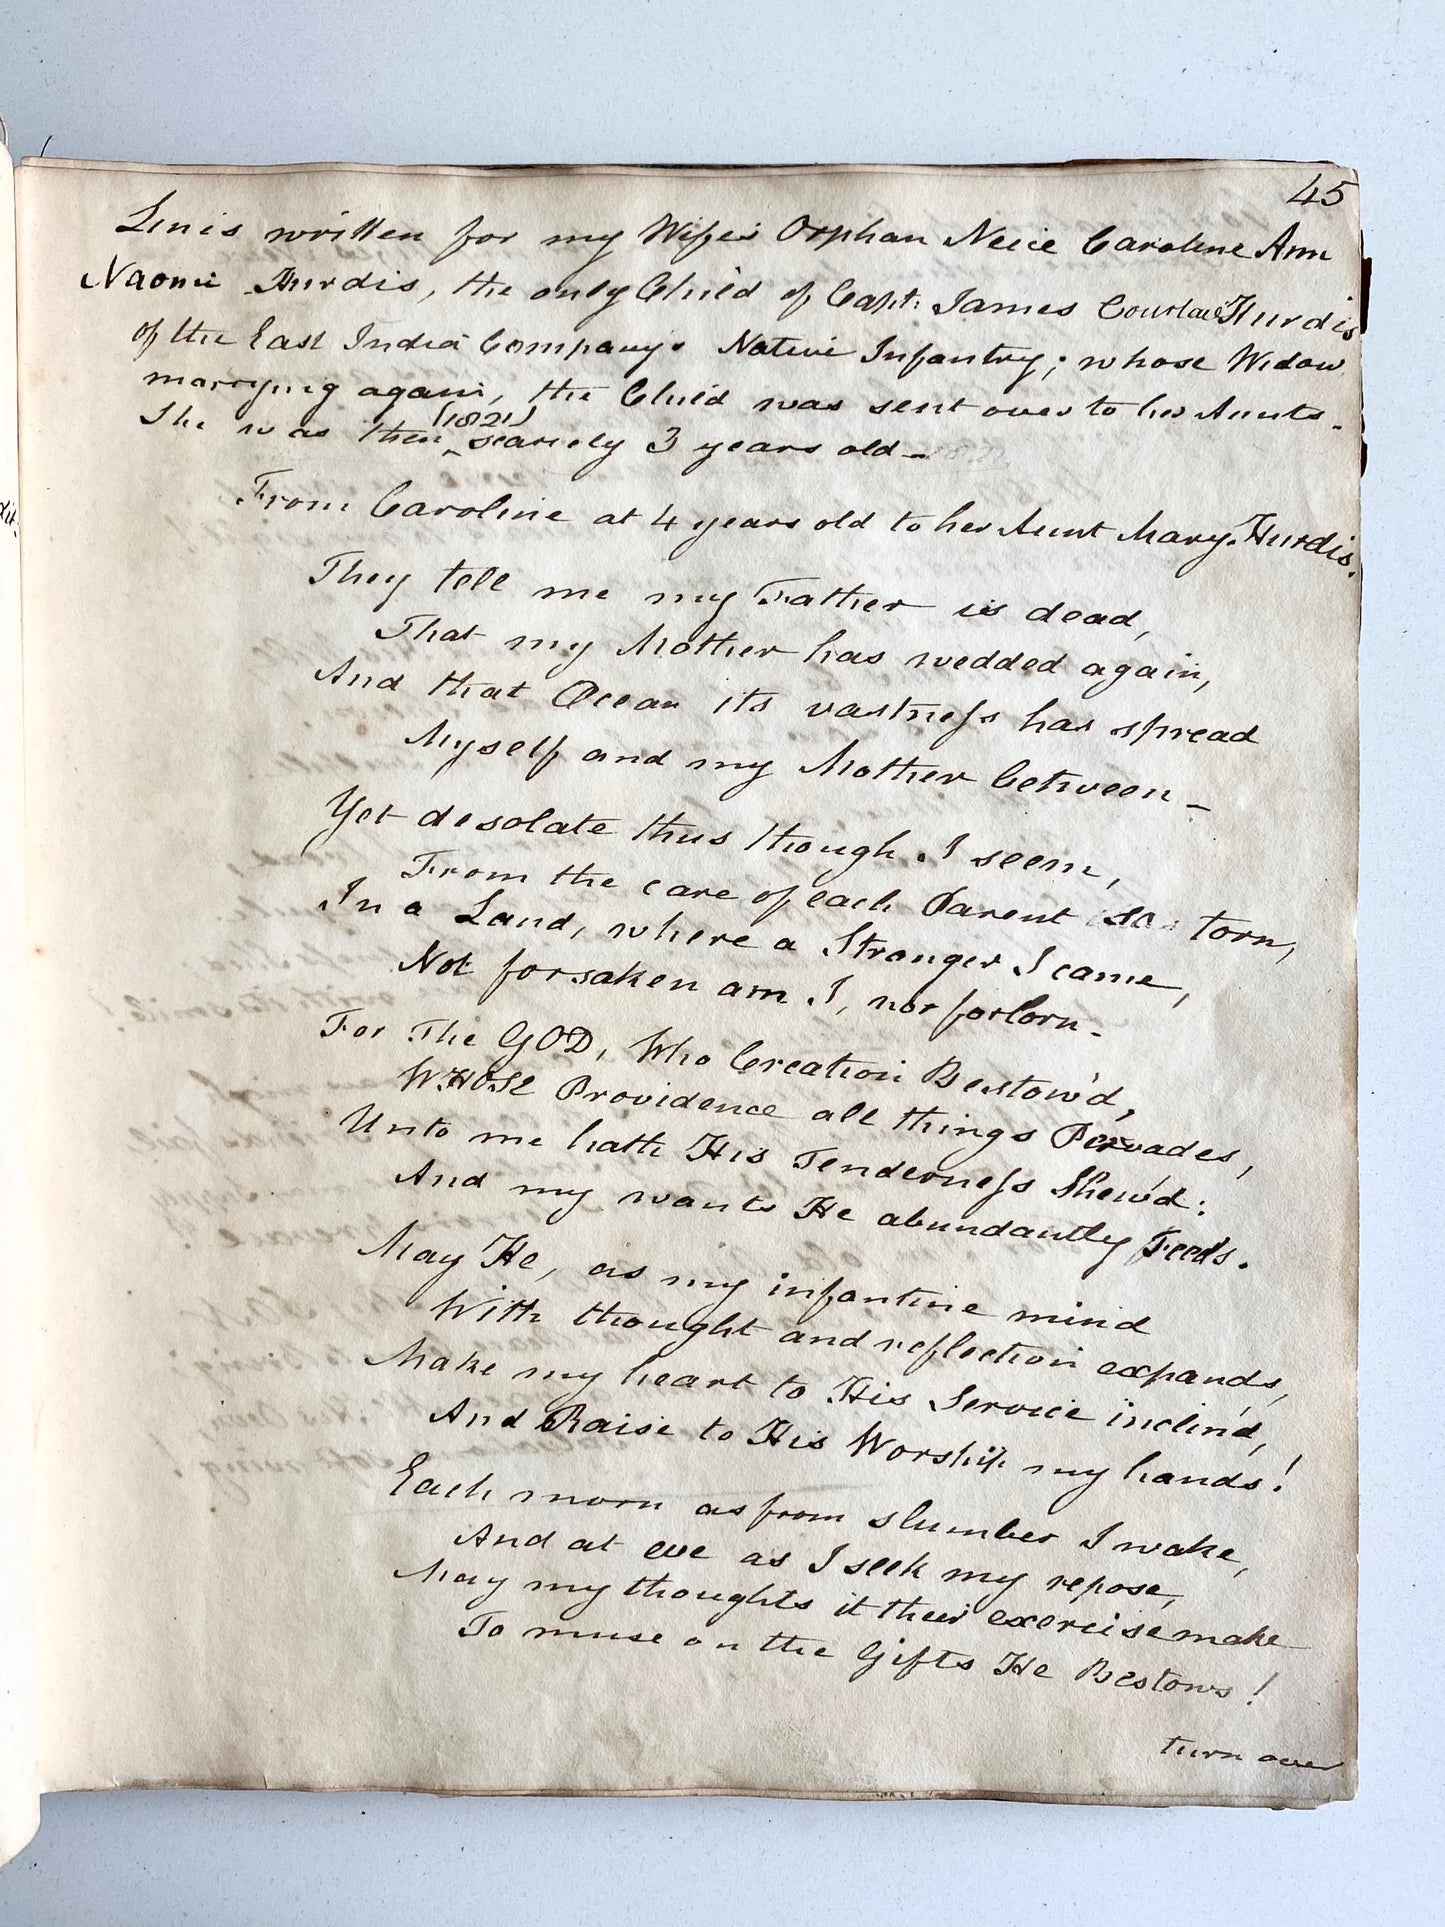 45
Lines written for my Wife's Orphan Neice Caroline Ann
Naomi Hurdis, the only Child of Capt. James Hurdis
of the East India Company's Native Infantry; whose Widow
marrying again, the Child was sent over to her Aunts.
(1821)
She was then ^ scarcely 3 years old —
From Caroline at 4 years old to her Aunt Mary Hurdis.
They tell me my Father is dead,
That my Mother has wedded again,
And that Ocean its vastness has spread
Myself and my Mother between —
Yet desolate thus though I seem,
From the care of each Parent so torn,
In a Land, where a Stranger I came,
Not forsaken am I, nor forlorn —
For The GOD, Who Creation Bestow'd,
WHOSE Providence all things Pervades,
Unto me hath His Tenderness Shew'd:
And my wants He abundantly Feeds.
May He, as my infantine mind
With thought and reflection expands,
Make my heart to His Service inclin'd,
And Raise to His Worship my hands!
Each morn as from slumber I wake,
And at eve as I seek my repose,
May my thoughts it their exercise make
To muse on the Gifts He Bestows!
turn over